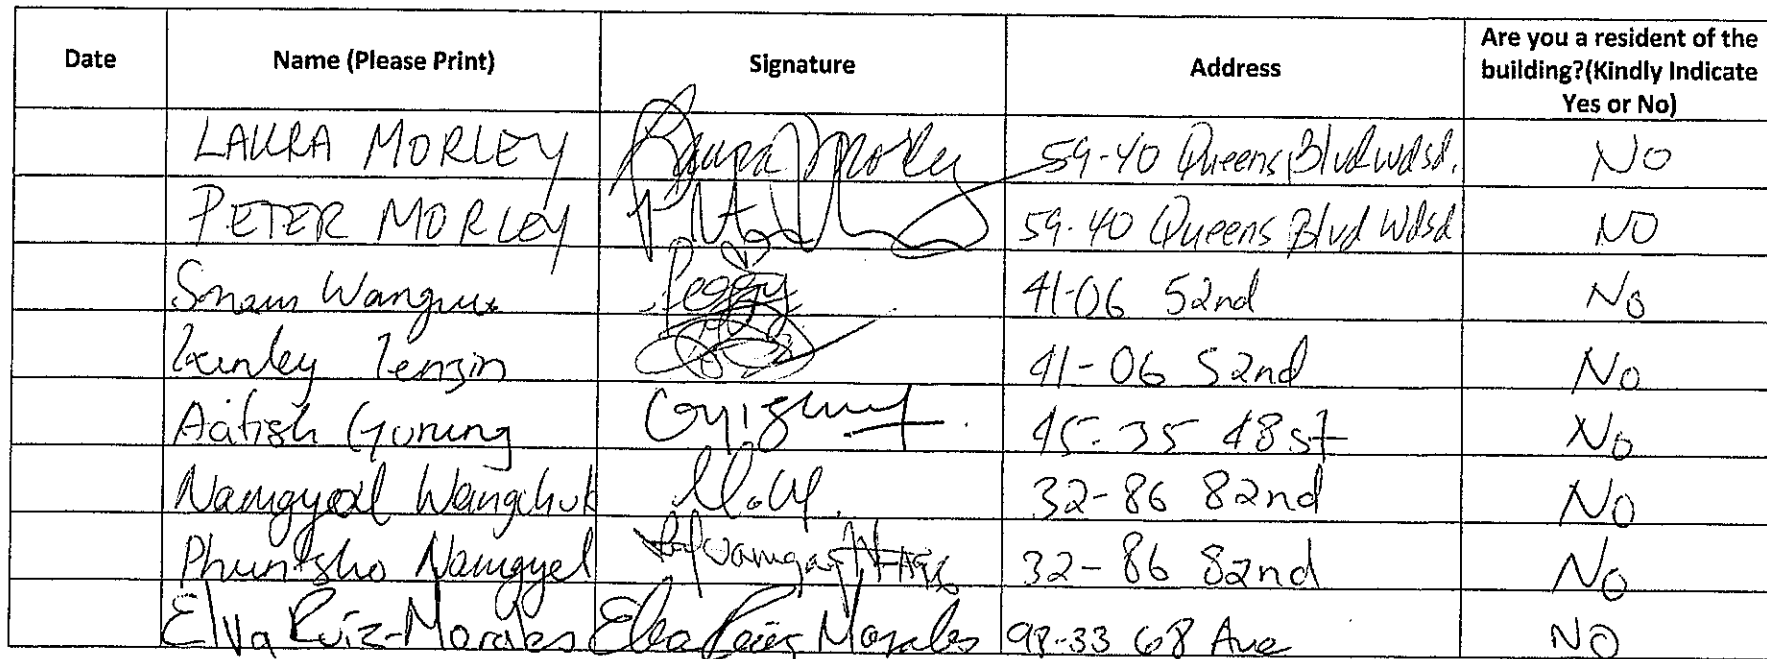 Date Name (Please Print) Signature Address Are you a resident of the building?(Kindly Indicate Yes or No)
LAURA MORLEY Laura Morley 59-40 Queens Blvd Wdsd. No
PETER MORLEY 59-40 Queens Blvd Wdsd NO
Wangmo Peggy 41-06 52nd No
Kinley Tenzin 41-06 52nd No
Aatish Gurung 45-35 48 st No
Namgyal Wangchuk 32-86 82nd No
Phuntsho Namgyel 32-86 82nd No
Elva Ruiz-Morales Elva Ruiz Morales 98-33 68 Ave NO